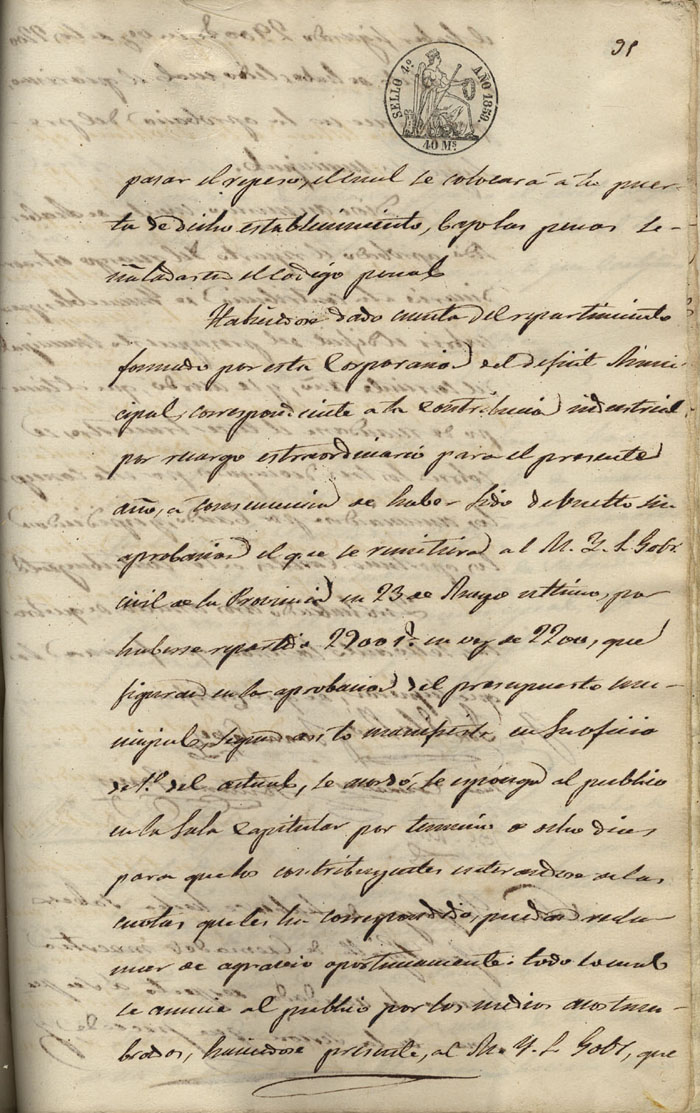 91
SELLO 4º AÑO 1850.
40 Ms
pasar el repeso, el cual se colocará á la puer-
ta de dicho establecimiento, bajo las penas se-
ñaladas en el código penal
Habiendose dado cuenta del repartimiento
formado por esta Corporacion del deficit Muni-
cipal, correspondiente a la contribucion industrial
por recargo extraordinario para el presente
año, á consecuencia de haber sido debuelto sin
aprobacion el que se remitiera al M. Y. S. Gobr
civil de la Provincia en 23 de Mayo ultimo, por
haberse repartido 2900 rs. en vez de 2200, que
figuran en la aprobacion del presupuesto mu-
nicipal, segun asi lo manifiesta en su oficio
de 1º del actual, se acordó, se esponga al publico
en la Sala Capitular por termino de ocho dias
para que los contribuyentes enterandose de las
cuotas que les ha correspondido, puedan recla-
mar de agravio oportunamente: todo lo cual
se anuncie al publico por los medios acostum-
brados, haciendose presente, al M. Y. S. Gobr, que